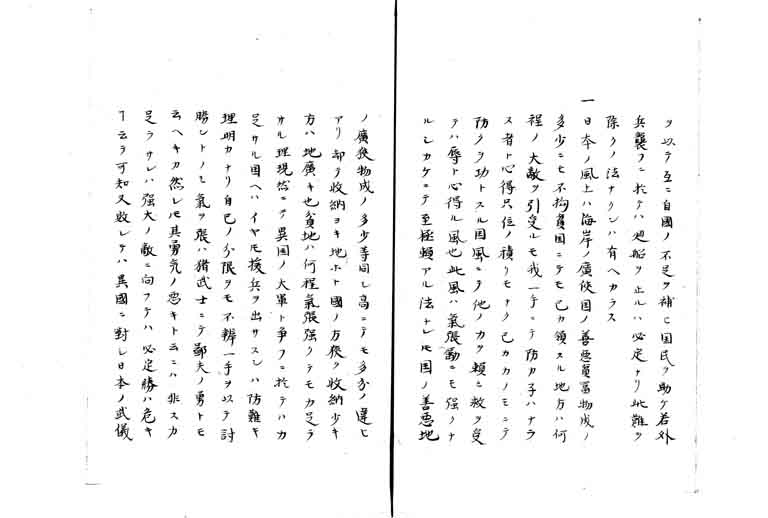 ヲ以テ互ニ自國ノ不足ヲ補ヒ国民ヲ助ク若外
兵襲フニ於テハ廻船ヲ止ルハ必定ナリ此難ヲ
除クノ法ナクンハ有ヘカラス
一日本ノ風土ハ海岸ノ廣狹国ノ善悪貧富物成ノ
多少ニモ不拘貧国ニテモ己カ領スル地方ハ何
程ノ大敵ヲ引受ルモ我一手ニテ防カ子ハナラ
ス者ト心得只位ノ積リモナク己カカノモニテ
防クヲ功トスル国風ニテ他ノカヲ頼ミ救ヲ受
テハ辱ト心得ル風也此風ハ氣張勸ニモ强クナ
ルシカケニテ至極頼アル法ナレモ国ノ善悪地
ノ廣狹物成ノ多少等同シ高ニテモ多分ノ違ヒ
アリ却テ收納ヨキ地ホト國ノ方狹ク收納少キ
方ハ地廣キ也貧地ハ何程氣張强クテモカ足ラ
サル理現然ニテ異国ノ大軍ト争フニ於テハカ
足サル国ヘハイヤモ援兵ヲ出サスンハ防難キ
理明カナリ自己ノ分限ヲモ不辨一手ヲ以テ討
勝ントノミ氣ヲ張ハ猪武士ニテ鄙夫ノ勇トモ
云ヘキカ然レモ其勇気ノ悪キト云ニハ非スカ
足ラサレハ强大ノ敵ニ向フテハ必定勝ハ危キ
ヿ云ラ可知又救レテハ異國ニ對シ日本ノ武儀